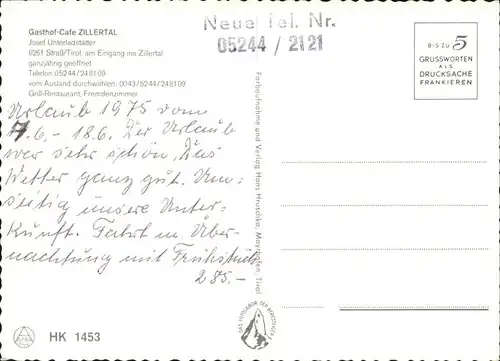 Gasthof-Cafe ZILLERTAL
Josef Unterladstätter
6261 Straß/Tirol, am Eingang ins Zillertal
ganzjährig geöffnet
Telefon 05244/248109
vom Ausland durchwählen: 0043/5244/248109
Grill-Restaurant, Fremdenzimmer
Neue Tel. Nr.
05244 / 2121
BIS ZU 5
GRUSSWORTEN
ALS
DRUCKSACHE
FRANKIEREN
Urlaub 1975 vom
7.6. - 18.6. Der Urlaub
war sehr schön, Das
Wetter ganz gut. Um=
seitig unsere Unter-
kunft. Fahrt m. Über-
nachtung mit Frühstück
285.-
Farbaufnahme und Verlag Hans Hruschka, Mayrhofen, Tirol
DAS FOTOLABOR DER BERGSTEIGER
HK 1453